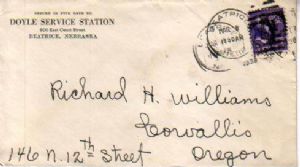 RETURN IN FIVE DAYS TO
DOYLE SERVICE STATION
East Court Street
BEATRICE, NEBRASKA
BEATRICE
Richard H. Williams
Corvallis
146 N. 12th Street Oregon